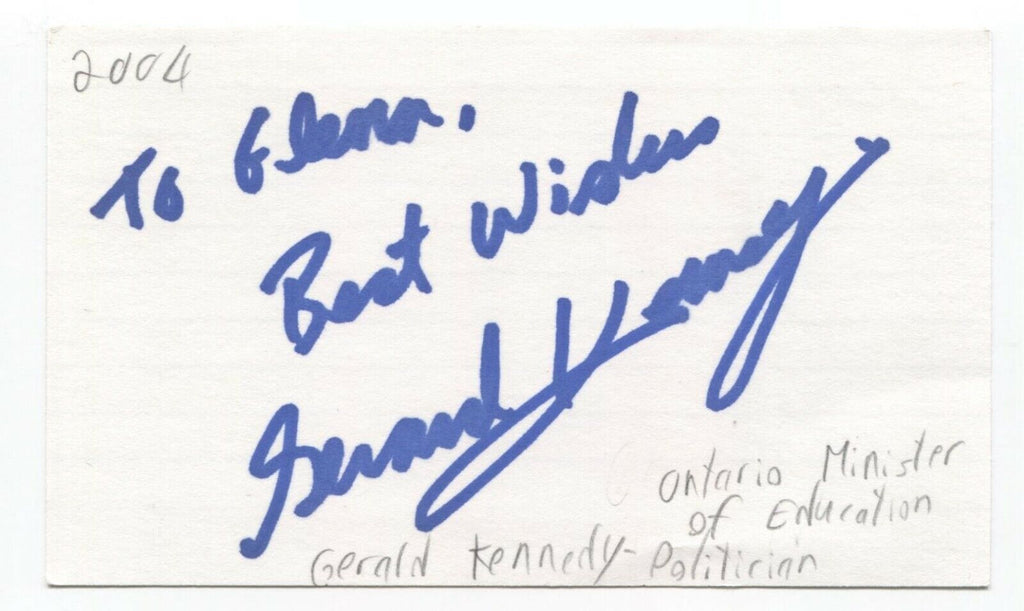 2004
To Glenn,
Best Wishes
Gerard Kennedy
Ontario Minister
of Education
Gerald Kennedy - Politician